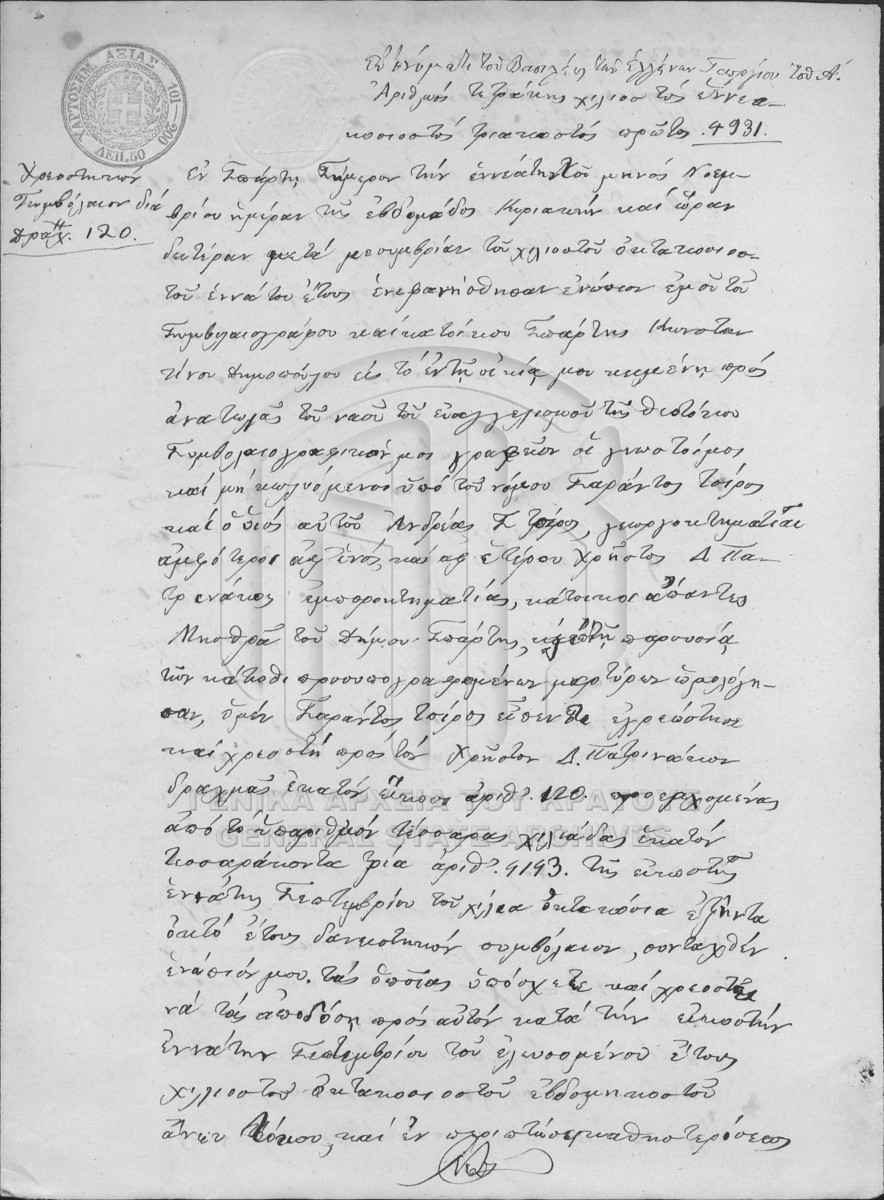 ΧΑΡΤΟΣΗΜ. ΑΞΙΑΣ
101-200
ΛΕΠ. 50
Ἐν ὀνόματι τοῦ Βασιλέως τῶν Ἑλλήνων Γεωργίου τοῦ Α΄.
Ἀριθμός τετράκης χιλιοστός ἐννεα-
κοσιοστός τριακοστός πρῶτος. 4931.
Χρεοστητικόν
Συμβόλαιον διά
Δραχ. 120.
Ἐν Σπάρτῃ Σήμερον τήν ἐννεάτην τοῦ μηνός Νοεμ-
βρίου ἡμέραν τῆς ἑβδομάδος Κυριακήν καί ὥραν
δευτέραν μετά μεσυμβρίαν τοῦ χιλιοστοῦ ὀκτακοσιοσ-
τοῦ ἐννάτου ἔτους ἐνεφανήσθησαν ἐνώπιον ἐμοῦ τοῦ
Συμβολαιογράφου καί κατοίκου Σπάρτης Κωνσταν
τίνου Δημοπούλου εἰς τό ἐν τῇ οἰκίᾳ μου κειμένῃ πρός
ἀνατωλάς τοῦ ναοῦ τοῦ εὐαγγελισμοῦ τῆς θεοτόκου
Συμβολαιογραφικόν μος γραφεῖον οἱ γνωστοί μος
καί μή κωλυόμενος ὑπό τοῦ νόμου Σαράντος Τσίρος
καί ὁ υἱός αὐτοῦ Ἀνδρέας Σ Τσίρος, γεωργοκτηματίαι
ἀμφότεροι ἀφ' ἑνός, καί ἀφ ἑτέρου Χρῆστος Δ Πα-
τρινάκος ἐμποροκτηματίας, κάτοικοι ἅπαντες
Μησθρᾶ τοῦ Δήμου Σπάρτης, παρουσίᾳ
τῶν κάτοθι προσυπογραφομένων μαρτύρων ὡμολόγη-
σαν, ὁ μέν Σαράντος Τσίρος εἶπεν ὅτι ἐχρεώστησε
καί χρεοστῆ πρός τόν Χρῆστον Δ. Πατρινάκον
δραχμάς ἑκατόν εἴκοσι ἀριθ. 120. προερχομένας
ἀπό τό ὑπ ἀριθμόν τέσσαρας χιλιάδας ἑκατόν
τεσσαράκοντα τρία ἀριθ. 4143. τῆς εἰκοστῆς
ἐννάτης Σεπτεμβρίου τοῦ χίλια ὀκτακόσια ἑξῆντα
ὀκτό ἔτους δανειστηκόν συμβόλαιον, συνταχθέν
ἐνόπιόν μου. τάς ὁποίας ὑπόσχετε καί χρεοστεῖ
νά τάς ἀποδόσῃ πρός αὐτόν κατά τήν εἰκοστήν
ἐννάτην Σεπτεμβρίου τοῦ ἐλευσομένου ἔτους
χιλιοστοῦ ὀκτακοσιοστοῦ ἑβδομηκοστοῦ
ἄνευ τόκου, καί ἐν περιπτώσει καθηστερόσεως
ΓΕΝΙΚΑ ΑΡΧΕΙΑ ΤΟΥ ΚΡΑΤΟΥΣ
GENERAL STATE ARCHIVES